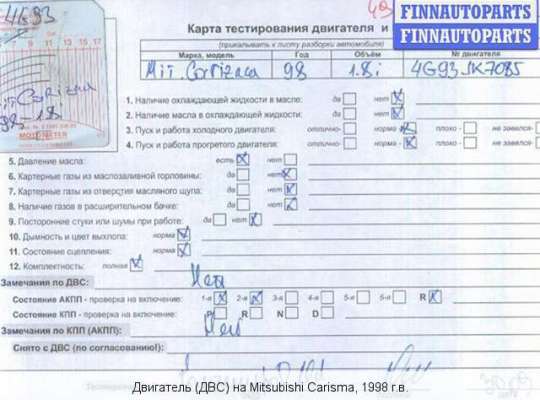 4G93
FINNAUTOPARTS
FINNAUTOPARTS
Карта тестирования двигателя и
(прикалывать к листу разборки автомобиля)
Марка, модель Год Объём № двигателя
Mit. Carizma 98 1.8i 4G93 JK7085
13 15 17
MOTOMETER
98-1.8i
1. Наличие охлаждающей жидкости в масле: да нет
2. Наличие масла в охлаждающей жидкости: да нет
3. Пуск и работа холодного двигателя: отлично- норма плохо - не завелся-
4. Пуск и работа прогретого двигателя: отлично- норма - плохо - не завелся-
5. Давление масла: есть нет
6. Картерные газы из маслозаливной горловины: да нет
7. Картерные газы из отверстия масляного щупа: да нет
8. Наличие газов в расширительном бачке: да нет
9. Посторонние стуки или шумы при работе: да нет
10. Дымность и цвет выхлопа: норма
11. Состояние сцепления: норма
12. Комплектность: полная
Замечания по ДВС: Нет
Состояние АКПП - проверка на включение: 1-я 2-я 3-я 4-я 5-я 6-я R
Состояние КПП - проверка на включение: P R N D
Замечания по КПП (АКПП): Нет
Снято с ДВС (по согласованию!):
Двигатель (ДВС) на Mitsubishi Carisma, 1998 г.в.